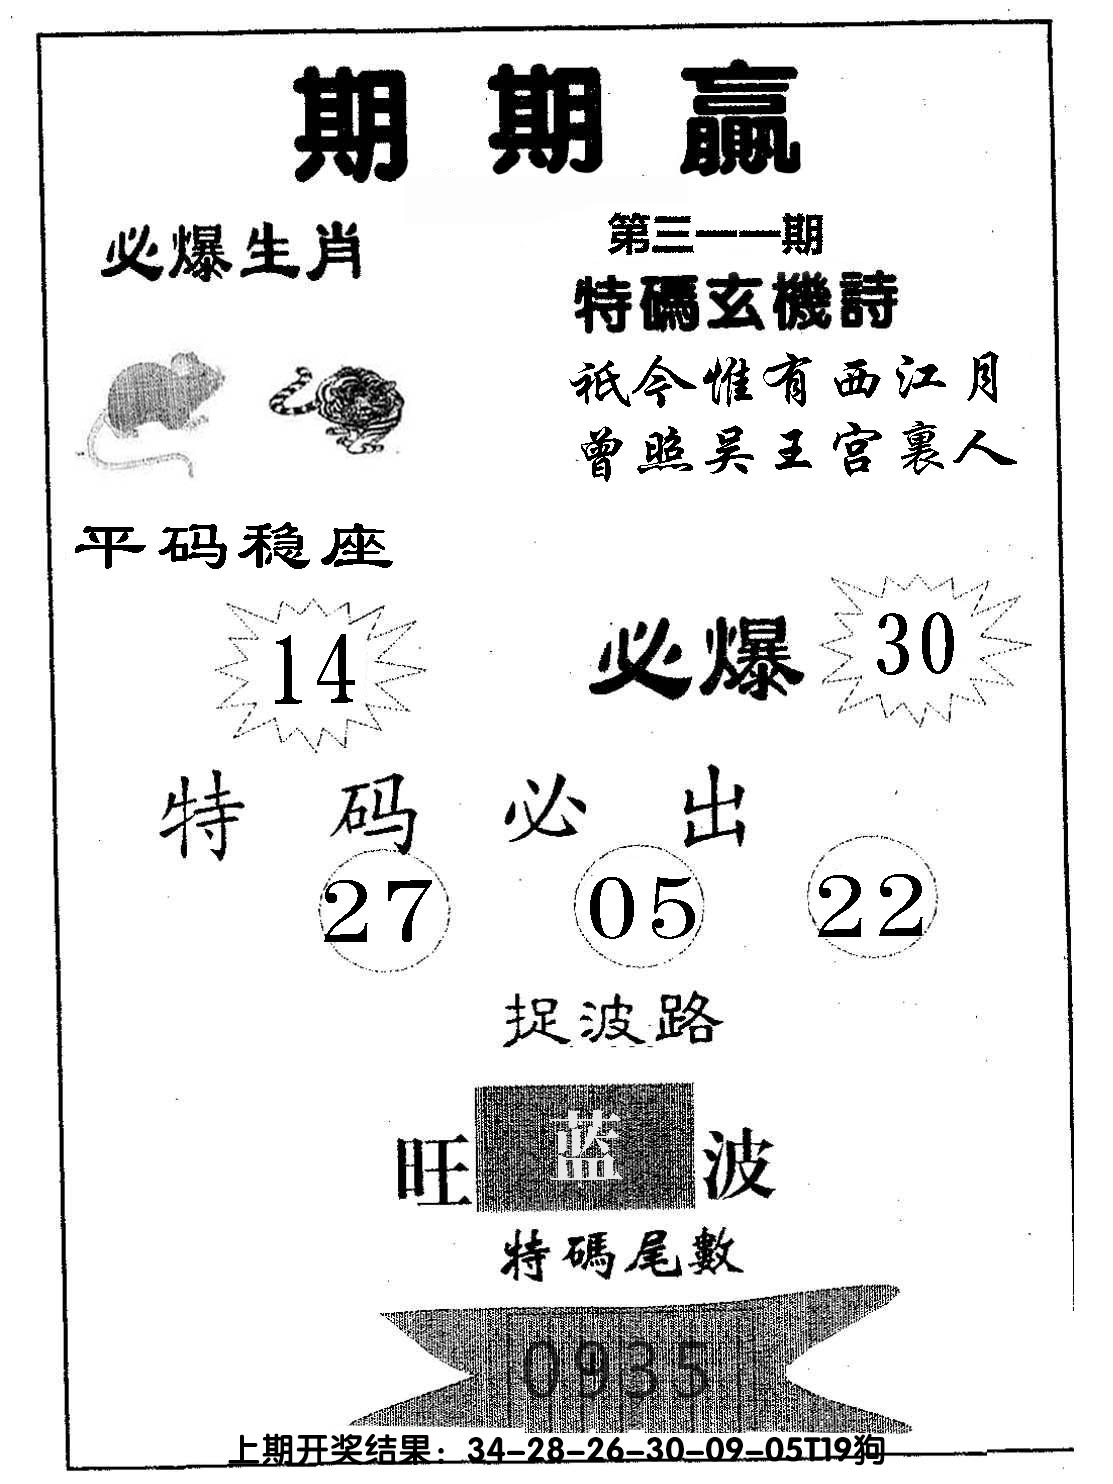 期期赢
必爆生肖
第三一一期
特碼玄機詩
祇今惟有西江月
曾照吴王宫裏人
平码稳座
14
必爆 30
特码必出
27 05 22
捉波路
旺蓝波
特碼尾數
0935
上期开奖结果：34-28-26-30-09-05T19狗